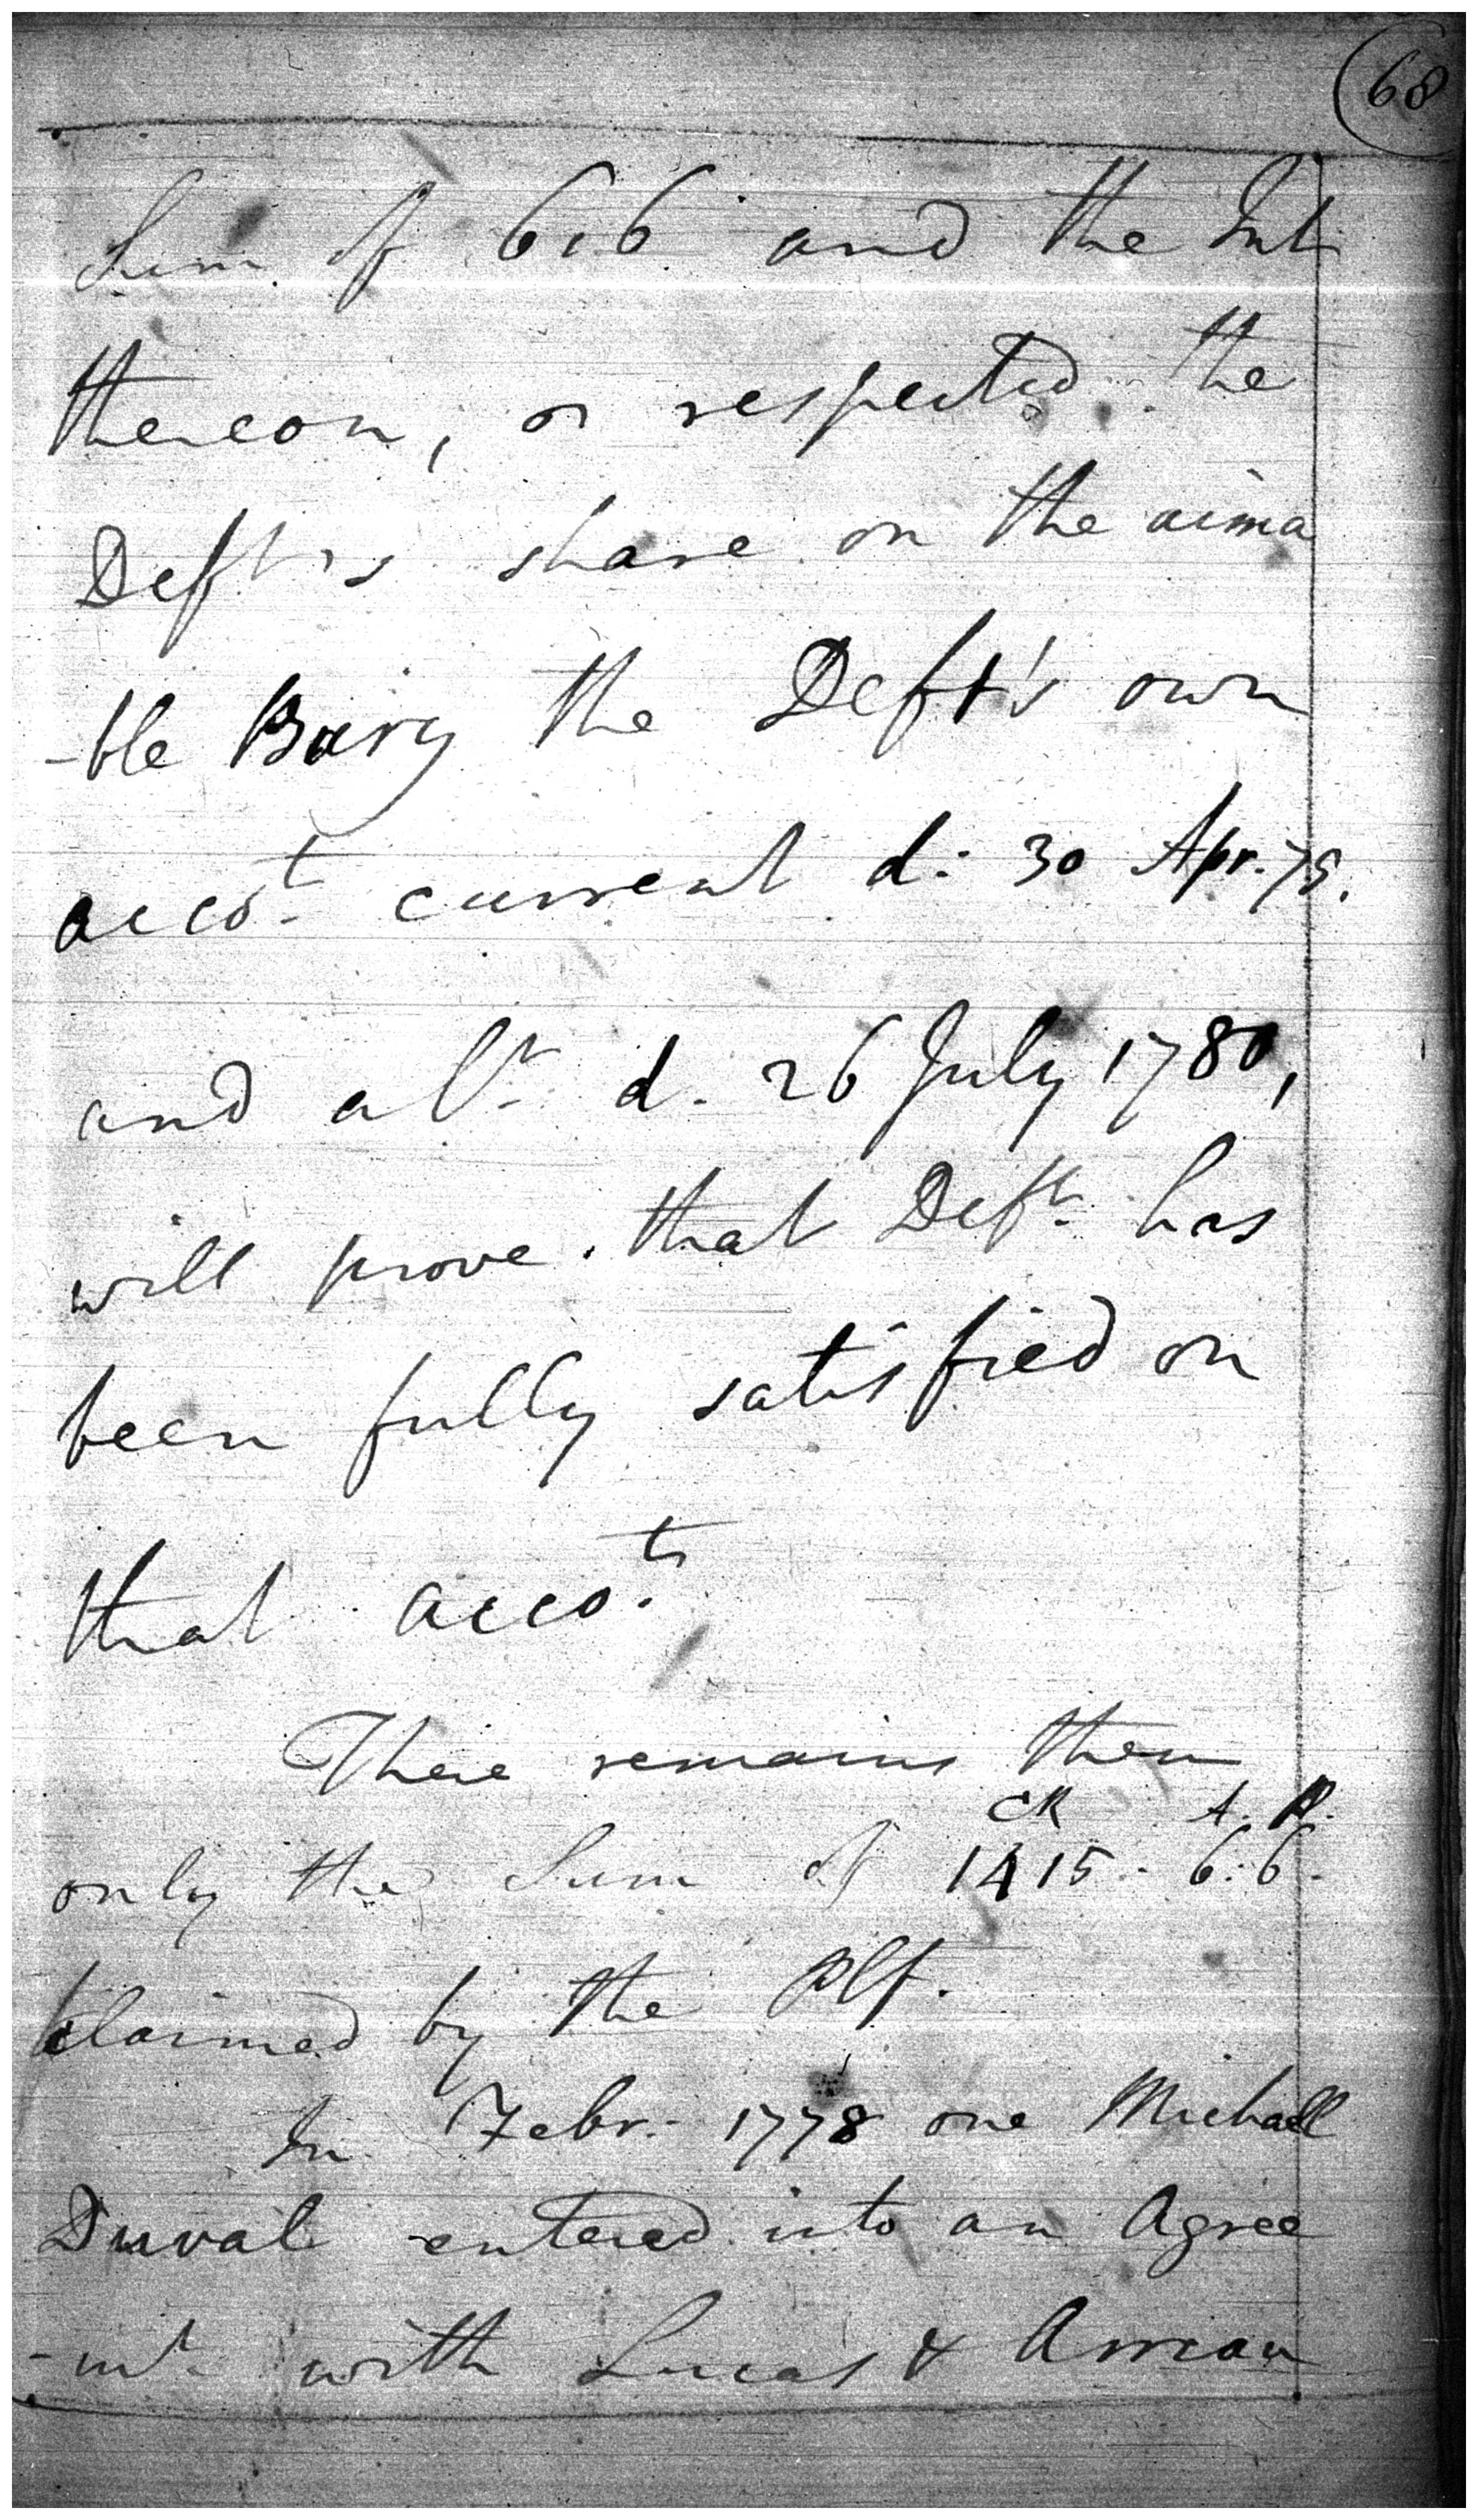 68
Sum of 616 and the Int
thereon, or respected the
Deft's share on the aima
-ble Bury the Deft's own
acco.t current d: 30 Apr. 79.
and d. 26 July 1780,
will prove that Deft. has
been fully satisfied on
that acco.t
There remains then
CR A. P.
only the Sum of 1415. 6. 6.
claimed by the Plf.
In Febr. 1778 one Michaell
Duval entered into an Agree
-mt. with Lucas &